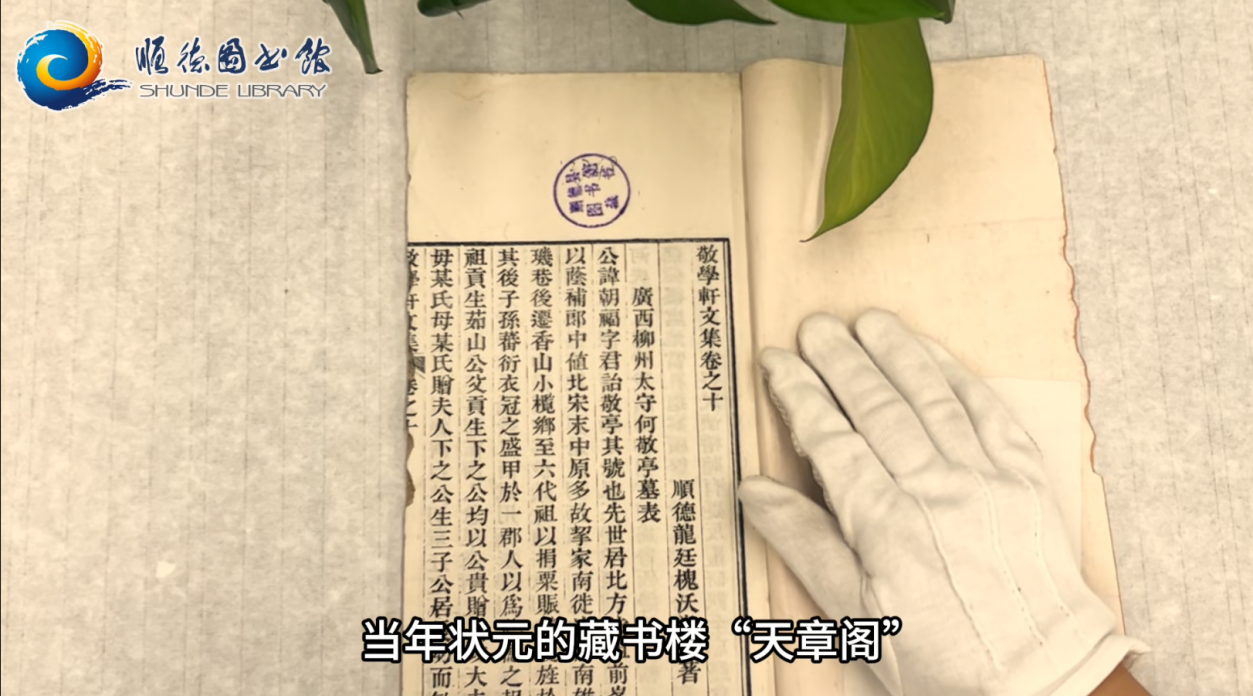 顺德图书馆
SHUNDE LIBRARY
敬學軒文集卷之十
順德龍廷槐沃
著
廣西柳州太守何敬亭墓表
公諱朝福字君詒敬亭其號也先世居北方
前
以蔭補郎中値北宋末中原多故挈家南徙
南雄
璣巷後遷香山小欖鄉至六代祖以捐粟賑
旌於
其後子孫蕃衍衣冠之盛甲於一郡人以爲
之
祖貢生茹山公父貢生下之公均以公貴贈
大夫
毋某氏母某氏贈夫人下之公生三子公居
而
当年状元的藏书楼“天章阁”